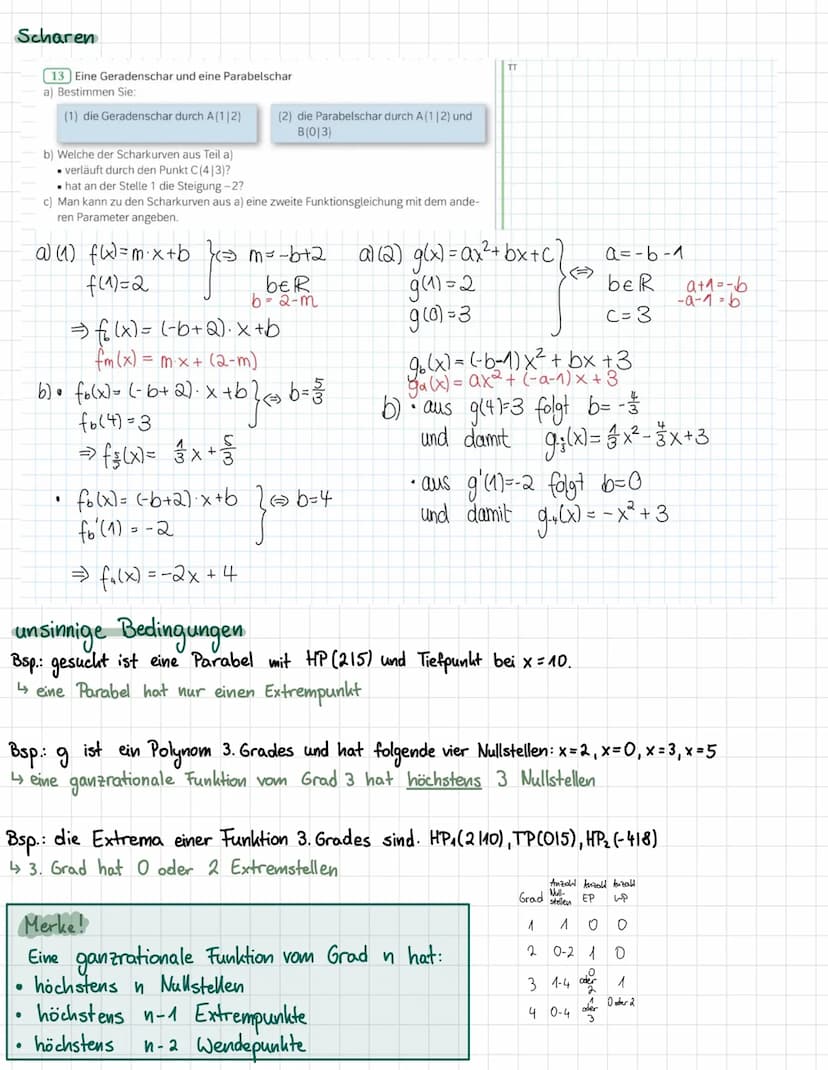 Scharen
13 Eine Geradenschar und eine Parabelschar
a) Bestimmen Sie:
(1) die Geradenschar durch A(1|2)
(2) die Parabelschar durch A(1|2) und
B(0|3)
b) Welche der Scharkurven aus Teil a)
• verläuft durch den Punkt C(4|3)?
• hat an der Stelle 1 die Steigung −2?
c) Man kann zu den Scharkurven aus a) eine zweite Funktionsgleichung mit dem ande-
ren Parameter angeben.
a) (1) f(x) = m·x+b } ⇔ m = -b+2
f(1) = 2 b∈ℝ
b = 2-m
⇒ f_b(x) = (-b+2)·x +b
f_m(x) = m·x + (2-m)
b) • f_b(x) = (-b+2)·x +b } ⇔ b = 5/3
f_b(4) = 3
⇒ f_5/3(x) = 1/3 x + 5/3
• f_b(x) = (-b+2)·x +b } ⇔ b=4
f_b'(1) = -2
⇒ f_4(x) = -2x + 4
a) (2) g(x) = ax²+bx+c } ⇔ a = -b-1
g(1) = 2 b∈ℝ a+1 = -b
g(0) = 3 c = 3 -a-1 = b
g_b(x) = (-b-1)x² + bx + 3
g_a(x) = ax² + (-a-1)x + 3
b) • aus g(4)=3 folgt b = -4/3
und damit g_-4/3(x) = 1/3 x² - 4/3 x + 3
• aus g'(1)=-2 folgt b=0
und damit g_-4(x) = -x² + 3
unsinnige Bedingungen
Bsp.: gesucht ist eine Parabel mit HP(2|5) und Tiefpunkt bei x = 10.
↳ eine Parabel hat nur einen Extrempunkt
Bsp.: g ist ein Polynom 3. Grades und hat folgende vier Nullstellen: x=2, x=0, x=3, x=5
↳ eine ganzrationale Funktion vom Grad 3 hat höchstens 3 Nullstellen
Bsp.: die Extrema einer Funktion 3. Grades sind. HP₁(2|10), TP(0|5), HP₂(-4|8)
↳ 3. Grad hat 0 oder 2 Extremstellen
Merke!
Eine ganzrationale Funktion vom Grad n hat:
• höchstens n Nullstellen
• höchstens n-1 Extrempunkte
• höchstens n-2 Wendepunkte
Grad Anzahl Null-stellen Anzahl EP Anzahl WP
1 1 0 0
2 0-2 1 0
3 1-4 0 oder 2 1
4 0-4 1 oder 3 0 oder 2